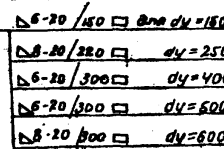 ⊿6-20/150 ▭ для dy=150
⊿8-20/220 ▭ dy=250
⊿6-20/300 ▭ dy=400
⊿6-20/300 ▭ dy=500
⊿8-20/300 ▭ dy=600